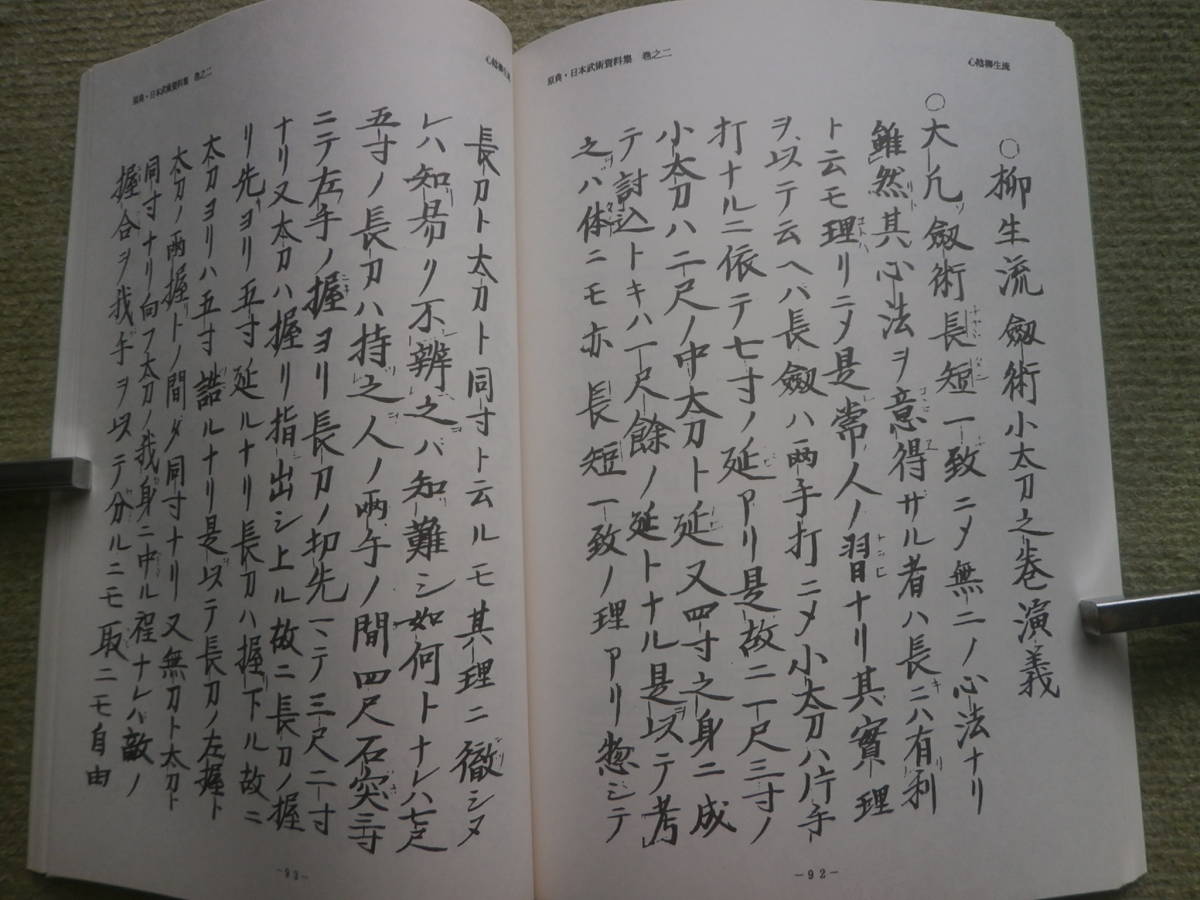 原典・日本武術資料集 巻之二
心陰柳生流
○柳生流劔術小太刀之巻演義
○大凢劔術長短一致ニメ無二ノ心法ナリ
雖然其心法ヲ意得ザル者ハ長ニハ有利
ト云モ理リニメ是常人ノ習ナリ其實理
ヲ以テ云ヘバ長劔ハ兩手打ニメ小太刀ハ片手
打ナルニ依テ七寸ノ延アリ是故ニ一尺三寸ノ
小太刀ハ二尺ノ中太刀ト延又四寸之身ニ成
テ討込トキハ一尺餘ノ延トナル是以テ考
之バ体ニモ亦長短一致ノ理アリ惣シテ
-92-
原典・日本武術資料集 巻之二
心陰柳生流
長刀ト太刀ト同寸ト云ルモ其理ニ徹シヌ
レハ知易リ不辨之バ知難シ如何トナレハ七尺
五寸ノ長刀ハ持之人ノ兩手ノ間四尺石突三寸
ニテ左手ノ握ヨリ長刀ノ切先マテ三尺二寸
ナリ又太刀ハ握リ指出シ上ル故ニ長刀ノ握
リ先ヨリ五寸延ルナリ長刀ハ握下ル故ニ
太刀ヨリハ五寸詰ルナリ是以テ長刀ノ左握ト
太刀ノ兩握トノ間ダ同寸ナリ又無刀ト太刀ト
同寸ナリ向フ太刀ノ我身ニ中ル程ナレハ敵ノ
握合ヲ我手ヲ以テ分ルニモ取ニモ自由
-93-